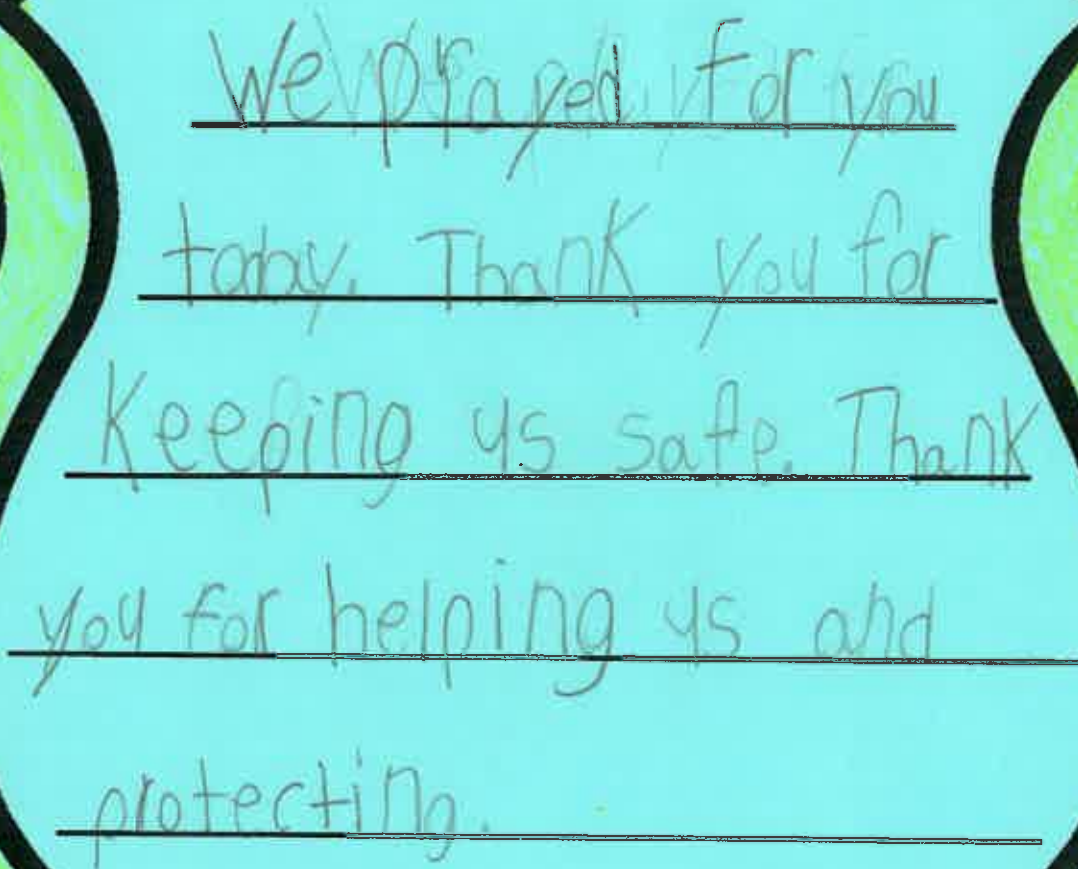 We prayed for you
today. Thank you for
Keeping us safe. Thank
you for helping us and
protecting.